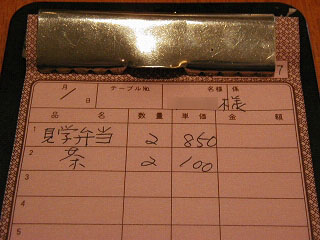 7
月 / 日 テーブル№ 名様 係
様
品 名 数 量 単 価 金 額
1 見学弁当 2 850
2 茶 2 100
3
4
5